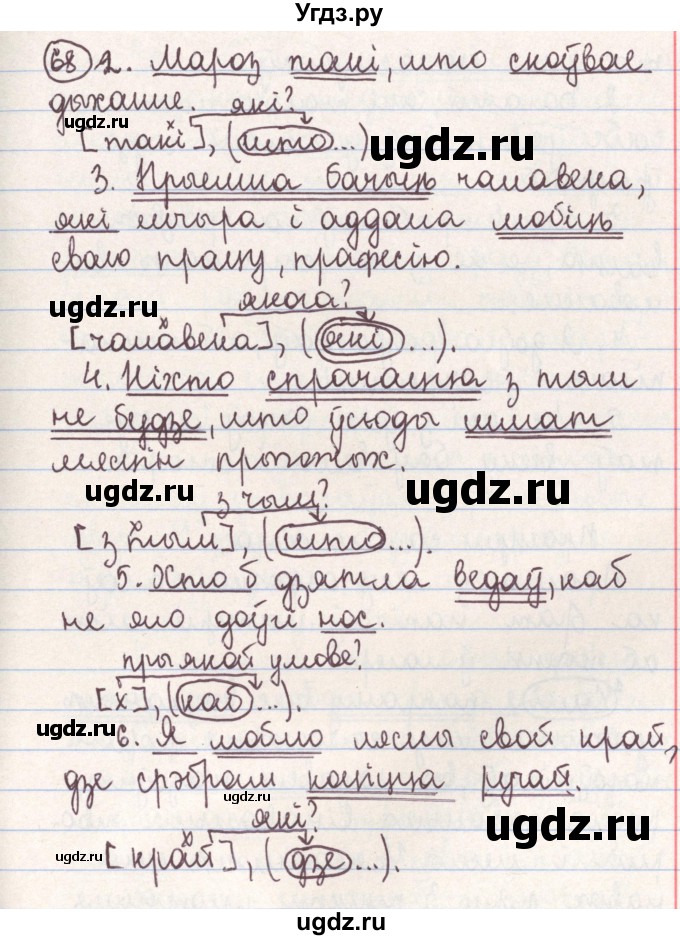 Угдз.ру
68 2. Мароз такі, што скоўвае
дыханне. які?
[такі], (што...)
ugdz.ru
ugdz.ru
3. Прыемна бачыць чалавека,
які шчыра і аддана любіць
сваю працу, прафесію.
ugdz.ru
якога?
ugdz.ru
[чалавека], (які ...).
4. Ніхто спрачацца з тым
не будзе, што ўсюды шмат
мясцін прыгожых.
ugdz.ru
з чым?
ugdz.ru
[з тым], (што...).
5. Хто б дзятла ведаў, каб
не яго доўгі нос.
ugdz.ru
пры якой умове?
ugdz.ru
[х], (каб ...).
ugdz.ru
6. Я люблю лясны свой край,
дзе срэбрам коціцца ручай.
ugdz.ru
які?
ugdz.ru
ugdz.ru
[край], (дзе ...).
ugdz.ru
ugdz.ru